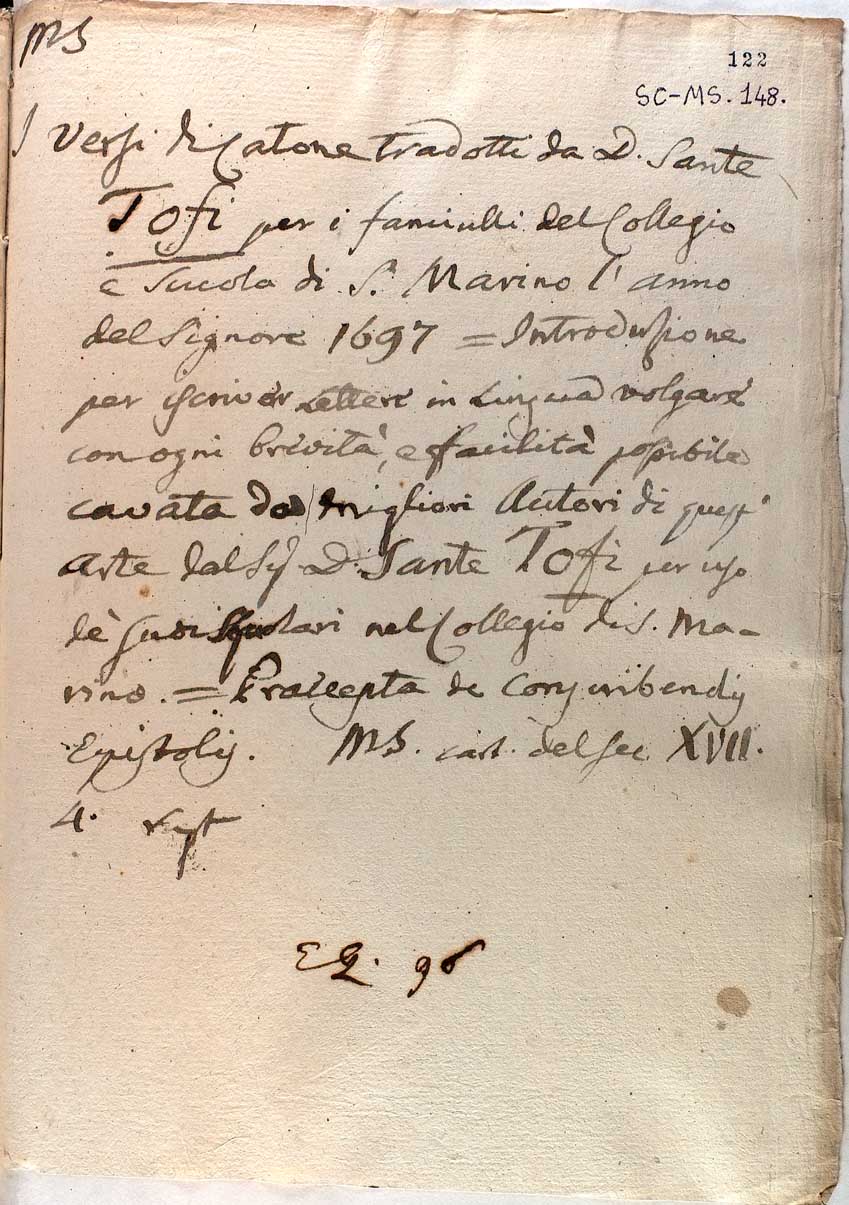 MS
122
SC-MS. 148.
I Versi di Catone tradotti da D. Sante
Tofi per i fanciulli del Collegio
e Scuola di S. Marino l' anno
del Signore 1697 = Introduzione
per iscriver Lettere in Lingua volgare
con ogni brevità, e facilità possibile
cavata da migliori Autori di quest'
arte dal Sig. D. Sante Tofi per uso
de suoi Scolari nel Collegio di S. Ma-
rino. = Praecepta de Conscribendis
Epistolis. MS. cart. del sec XVII.
4.
96